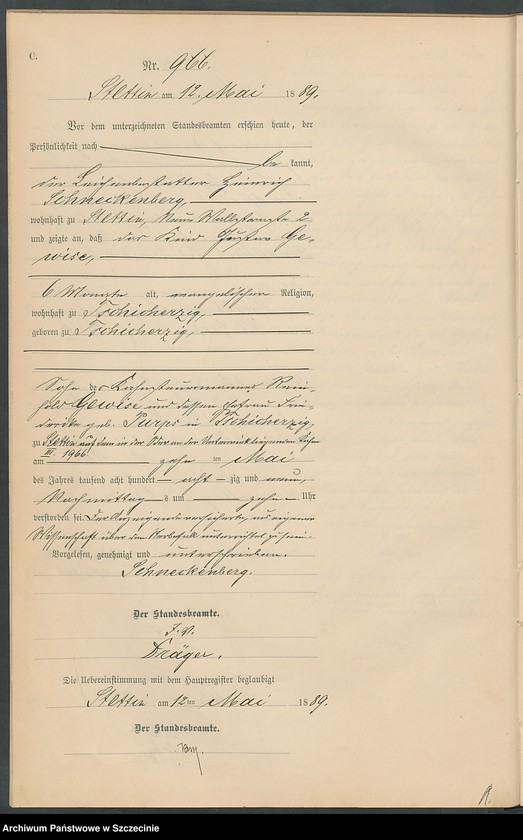 C.
Nr. 966.
Stettin am 12. Mai 1889.
Vor dem unterzeichneten Standesbeamten erschien heute, der
Persönlichkeit nach be kannt,
der Leichenbestatter Heinrich
Schneckenberg,
wohnhaft zu Stettin, Neue Wallstraße 2
und zeigte an, daß das Kind Gustav Ge-
wise,
6 Monate alt, evangelischer Religion,
wohnhaft zu Tschicherzig,
geboren zu Tschicherzig,
Sohn des Kahnsteuermannes Rein-
hold Gewise und dessen Ehefrau Frie-
derike geb. Purps in Tschicherzig,
zu Stettin auf dem in der Oder an der Unterwiek liegenden
III. 1966
am zehn ten Mai
des Jahres tausend acht hundert acht zig und neun,
Nachmittags um zehn Uhr
verstorben sei. Der Anzeigende versicherte, aus eigener
Wissenschaft über den Sterbefall unterrichtet zu sein.
Vorgelesen, genehmigt und unterschrieben.
Schneckenberg.
Der Standesbeamte.
J. V.
Dräger.
Die Uebereinstimmung mit dem Hauptregister beglaubigt
Stettin am 12ten Mai 1889.
Der Standesbeamte.
Archiwum Państwowe w Szczecinie